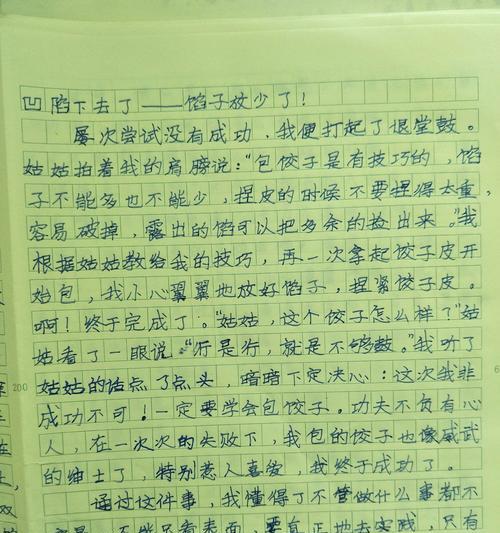 凹陷下去了——馅子放少了！
屡次尝试没有成功，我便打起了退堂鼓。
姑姑拍着我的肩膀说："包饺子是有技巧的，馅
子不能多也不能少，捏皮的时候不要捏得太重，
容易破掉，露出的馅可以把多余的捡出来。"我
根据姑姑教给我的技巧，再一次拿起饺子皮开
始包，我小心翼翼地放好馅子，捏紧饺子皮。
啊！终于完成了。"姑姑，这个饺子怎么样？"姑
姑看了一眼说："行是行，就是不够鼓。"我听了
200 姑姑的话点了点头，暗暗下定决心：这次我非
成功不可！一定要学会包饺子。功夫不负有心
人，在一次次的失败下，我包的饺子也像威武
的绅士了，特别惹人喜爱，我终于成功了。
通过这件事，我懂得了不管做什么事都不
不能只看表面，要真正地去实践，只有